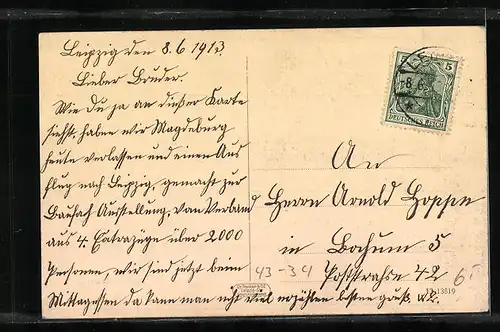 Leipzig den 8.6 1913
Lieber Bruder.
Wie Du ja an dießer Karte
siehst, haben wir Magdeburg
heute verlassen und einen Aus
flug nach Leipzig, gemacht zur
Baufach Ausstellung, vom Verband
aus 4. Extrazüge über 2000
Personen, wir sind jetzt beim
Mittagessen da kann man nicht viel erzählen
5
DEUTSCHES REICH
An
Herrn Arnold Hoppe
in Bochum 5
Poststrahse 42
43-34
13819